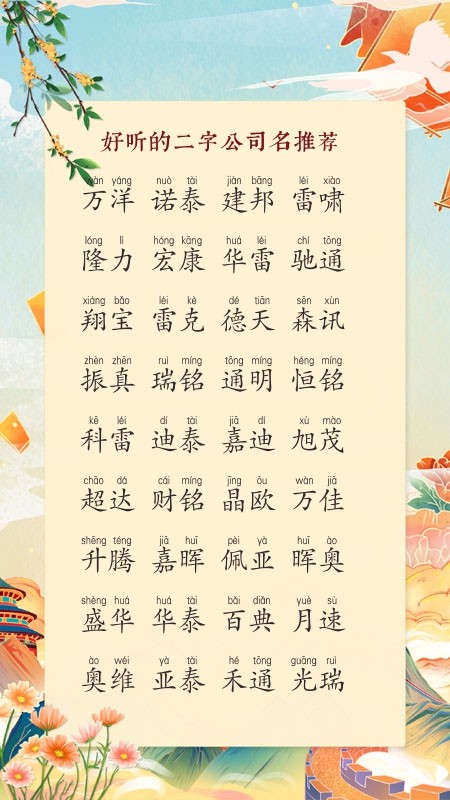 好听的二字公司名推荐
wàn yáng nuò tài jiàn bāng léi xiào
万洋 诺泰 建邦 雷啸
lóng lì hóng kāng huá léi chí tōng
隆力 宏康 华雷 驰通
xiáng bǎo léi kè dé tiān sēn xùn
翔宝 雷克 德天 森讯
zhèn zhēn ruì míng tōng míng héng míng
振真 瑞铭 通明 恒铭
kē léi dí tài jiā dí xù mào
科雷 迪泰 嘉迪 旭茂
chāo dá cái míng jīng ōu wàn jiā
超达 财铭 晶欧 万佳
shēng téng jiā huī pèi yà huī ào
升腾 嘉晖 佩亚 晖奥
shèng huá huá tài bǎi diǎn yuè sù
盛华 华泰 百典 月速
ào wéi yà tài hé tōng guāng ruì
奥维 亚泰 禾通 光瑞